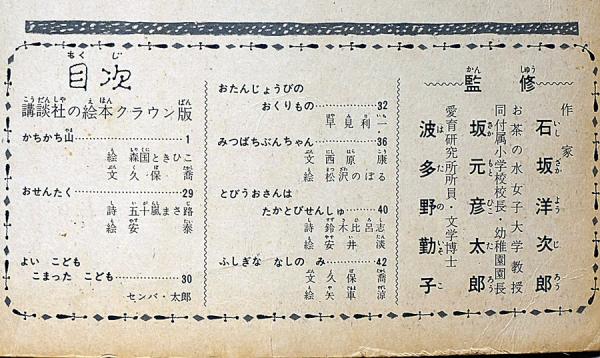 目次
講談社の絵本クラウン版
かちかち山……1
絵 森国ときひこ
文 久保喬
おせんたく……29
詩 五十嵐まさ路
絵 安泰
よい こども
こまった こども……30
センバ・太郎
おたんじょうびの
おくりもの……32
早見利一
みつばちぶんちゃん……36
文 西原康
絵 松沢のぼる
とびうおさんは
たかとびせんしゅ……40
詩 鈴木比呂志
絵 安井淡
ふしぎな なしの み……42
文 久保喬
絵 矢車涼
監修
作家
石坂洋次郎
お茶の水女子大学教授
同付属小学校校長・幼稚園園長
坂元彦太郎
愛育研究所所員・文学博士
波多野勤子